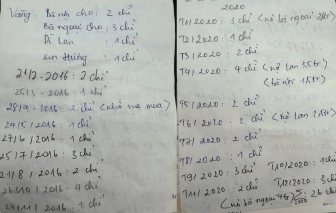 Vàng Bà nội cho: 2 chỉ
Bà ngoại cho: 3 chỉ
Dì Lan : 1 chỉ
: 1 chỉ
2/2-2016: 2 chỉ
25/3-2016: 1 chỉ
28/4-2016: 2 chỉ (nhờ mẹ mua)
24/5/2016: 1 chỉ
27/6/2016: 1 chỉ
25/7/2016: 3 chỉ
21/8/2016: 2 chỉ
26/10/2016: 4 chỉ
24/11/2016: 1 chỉ
2020
T1/2020: 3 chỉ (nợ bà ngoại
T2/2020: 1 chỉ
T3/2020: 2 chỉ
T4/2020: 4 chỉ (nợ lan 35tr)
(bà nội 15tr)
T5/2020: 2 chỉ
T6/2020: 2 chỉ (nợ lan
T7/2020: 2 chỉ
T8/2020: 1 chỉ T10/2020: 1 chỉ
T9/2020: 3 chỉ T12/2020: 3 chỉ
T11/2020: 2 chỉ 26 chỉ
(nợ bà ngoại